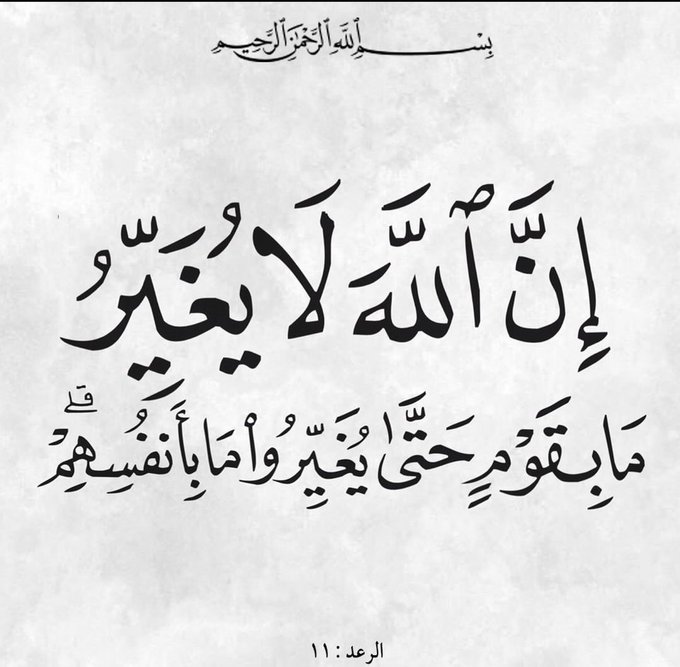 بِسْمِ ٱللَّهِ ٱلرَّحْمَٰنِ ٱلرَّحِيمِ
إِنَّ ٱللَّهَ لَا يُغَيِّرُ
مَا بِقَوْمٍ حَتَّىٰ يُغَيِّرُوا۟ مَا بِأَنفُسِهِمْ ۗ
الرعد : ١١